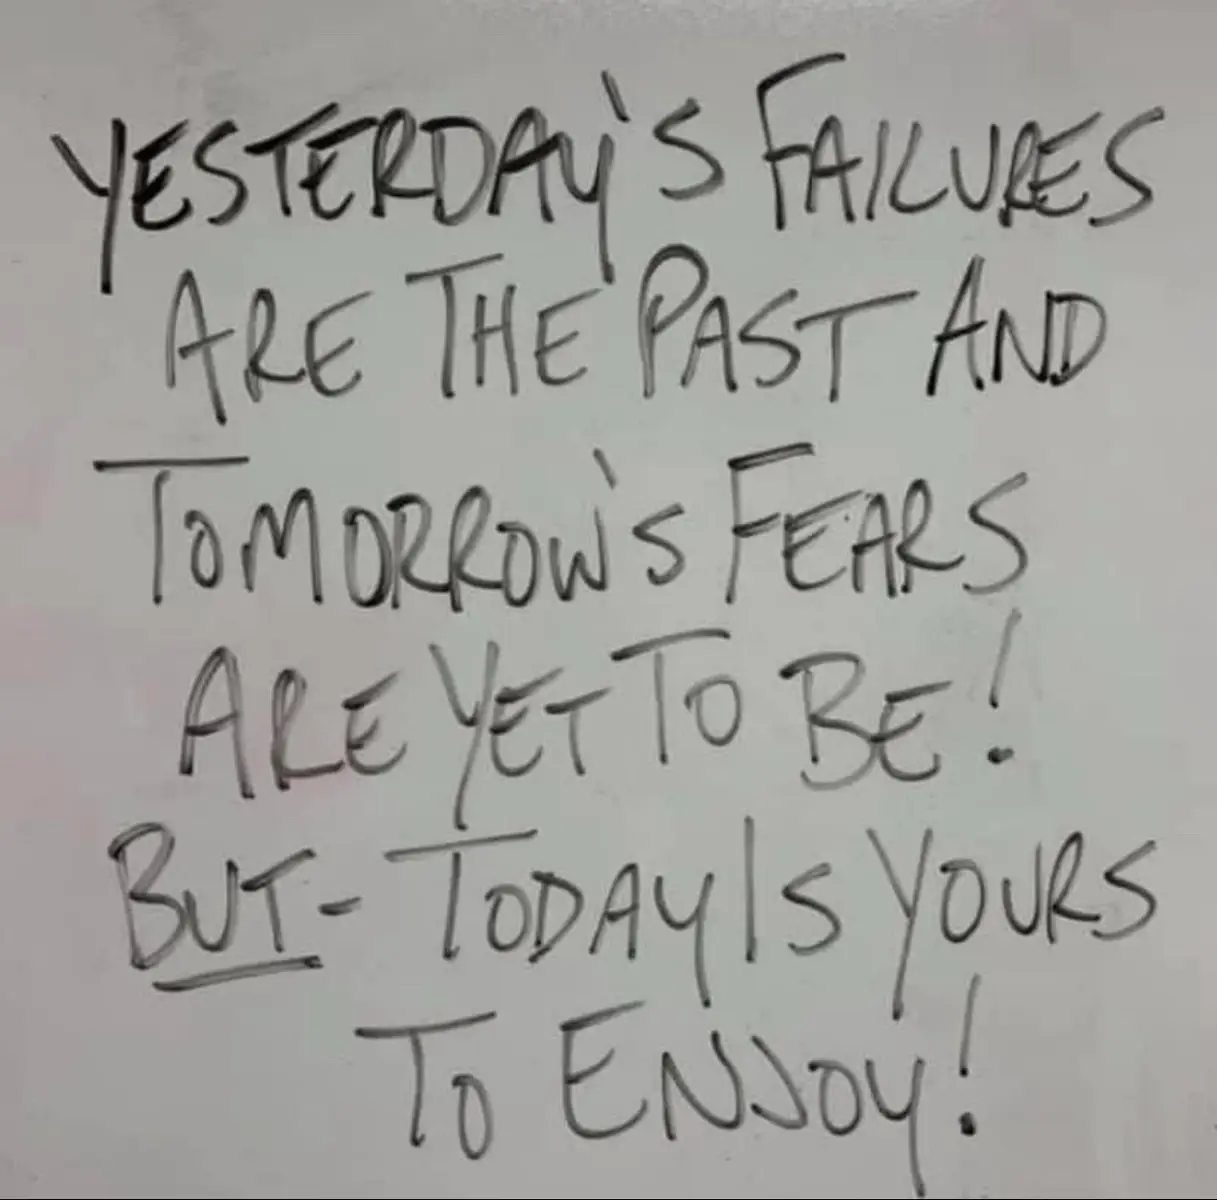 YESTERDAY'S FAILURES
ARE THE PAST AND
TOMORROW'S FEARS
ARE YET TO BE!
BUT- TODAY IS YOURS
TO ENJOY!